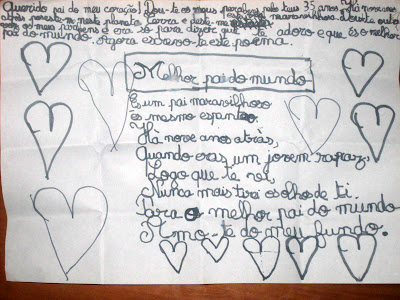 Querido pai do meu coração! Dou-te os meus parabéns pelos teus 35 anos. Há nove anos
atrás
neste planeta Terra e deste-me
maravilhosa
era só para dizer que te adoro e que és o melhor
pai do mundo. Agora escrevo-te este poema.
Melhor pai do mundo
És um pai maravilhoso
és mesmo espantoso.
Há nove anos atrás,
Quando eras um jovem rapaz,
Logo que te vi,
Nunca mais tirei os olhos de ti.
Para o melhor pai do mundo
Amo-te do meu fundo.